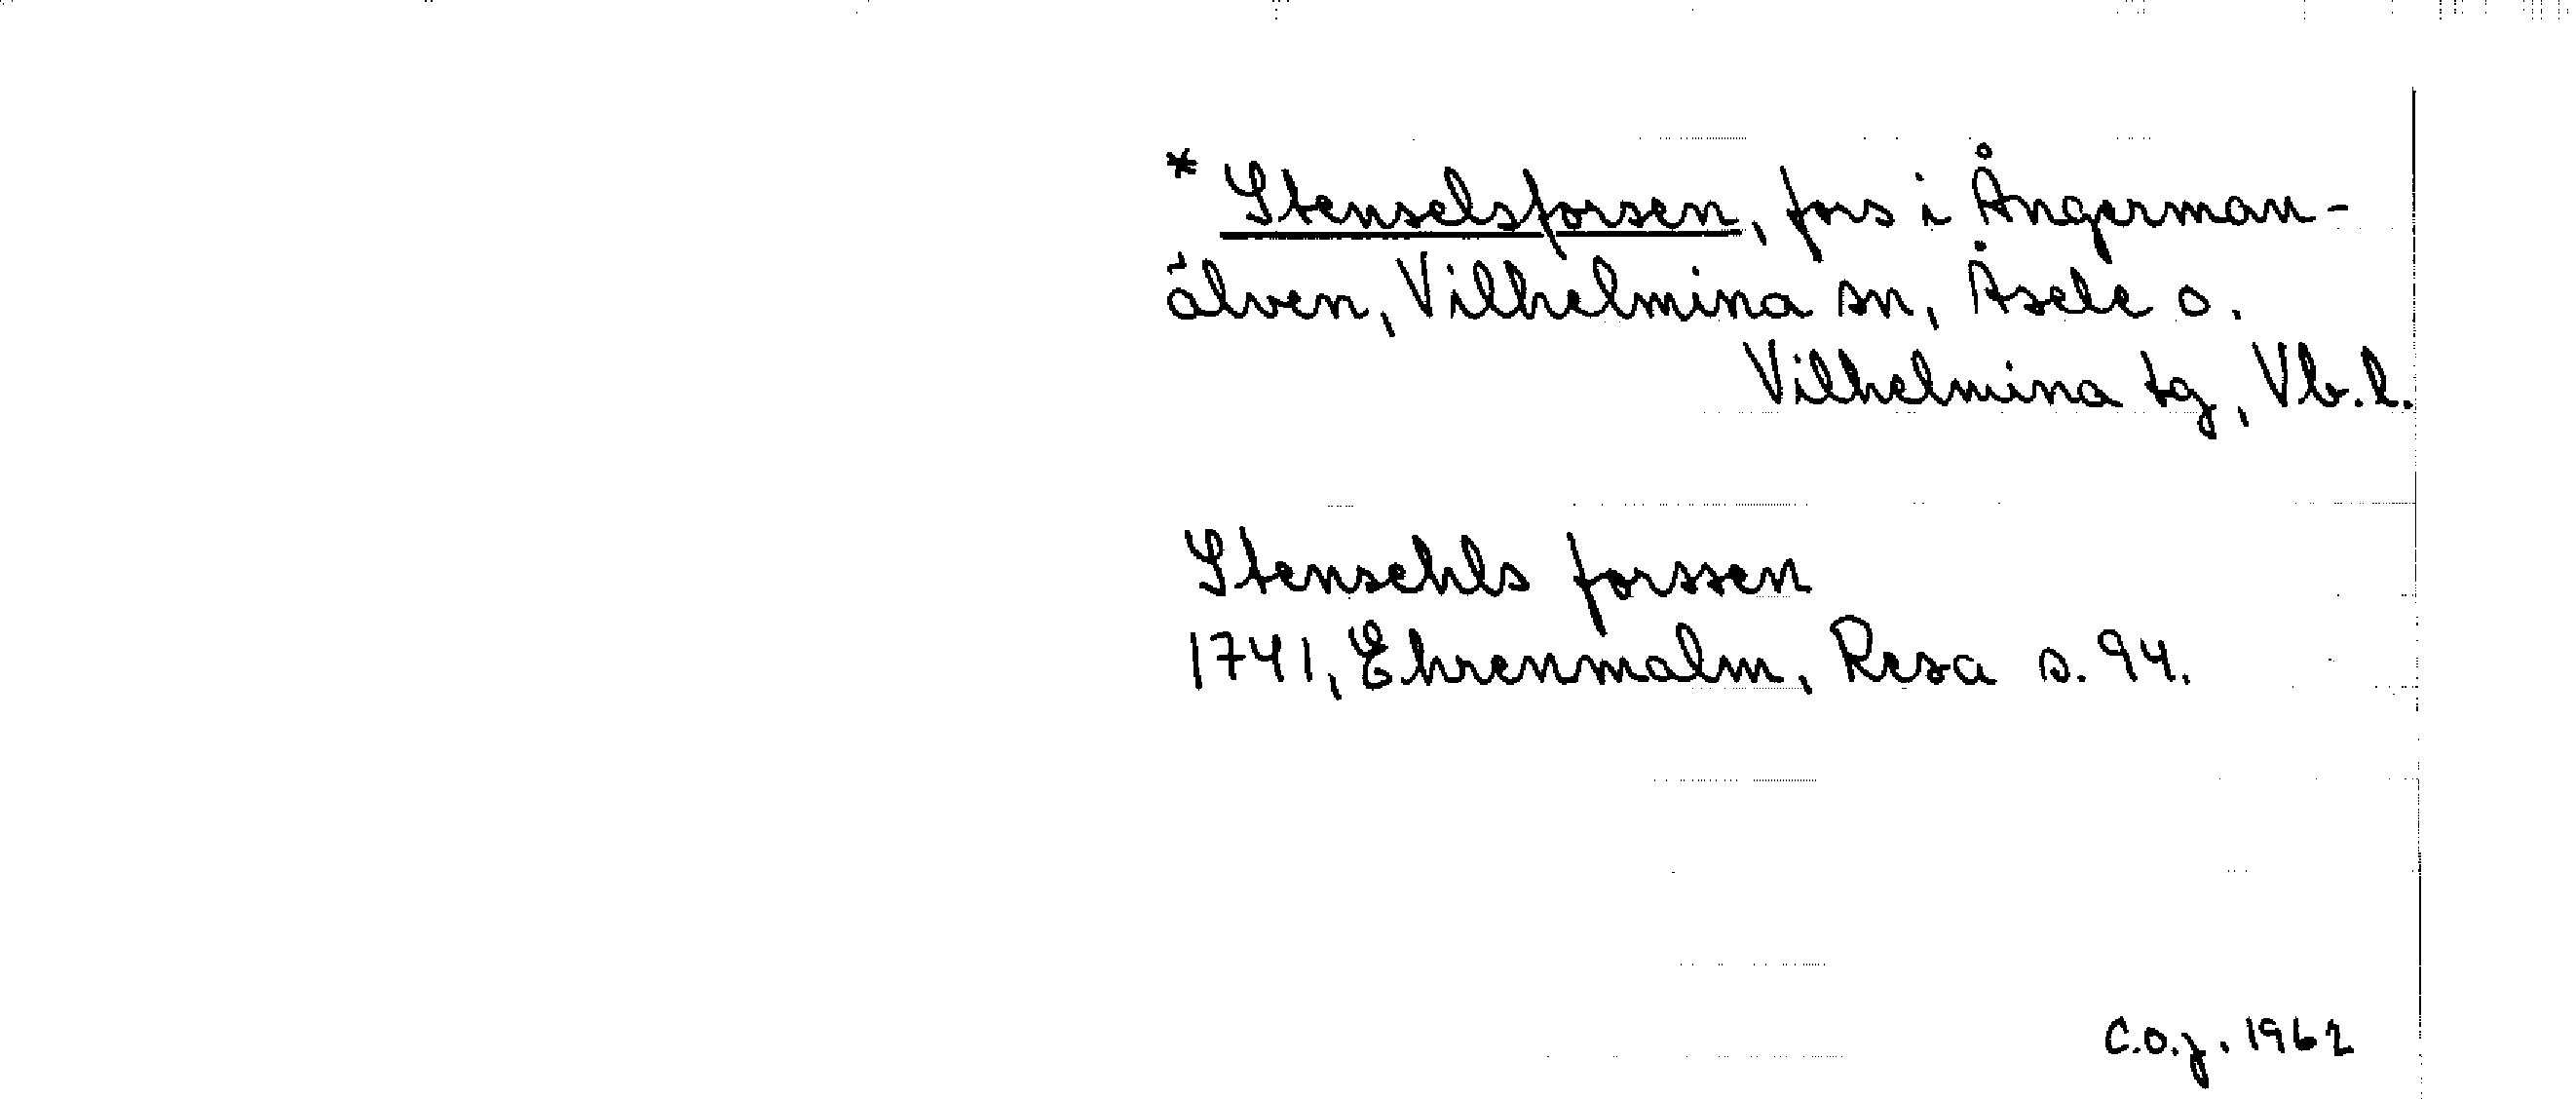 * Stenselsforsen, fors i Ångerman-
älven, Vilhelmina sn, Åsele o.
Vilhelmina tg, Vb.l.
Stensehls forssen
1741, Ehrenmalm, Resa s. 94.
C.O.J. 1962